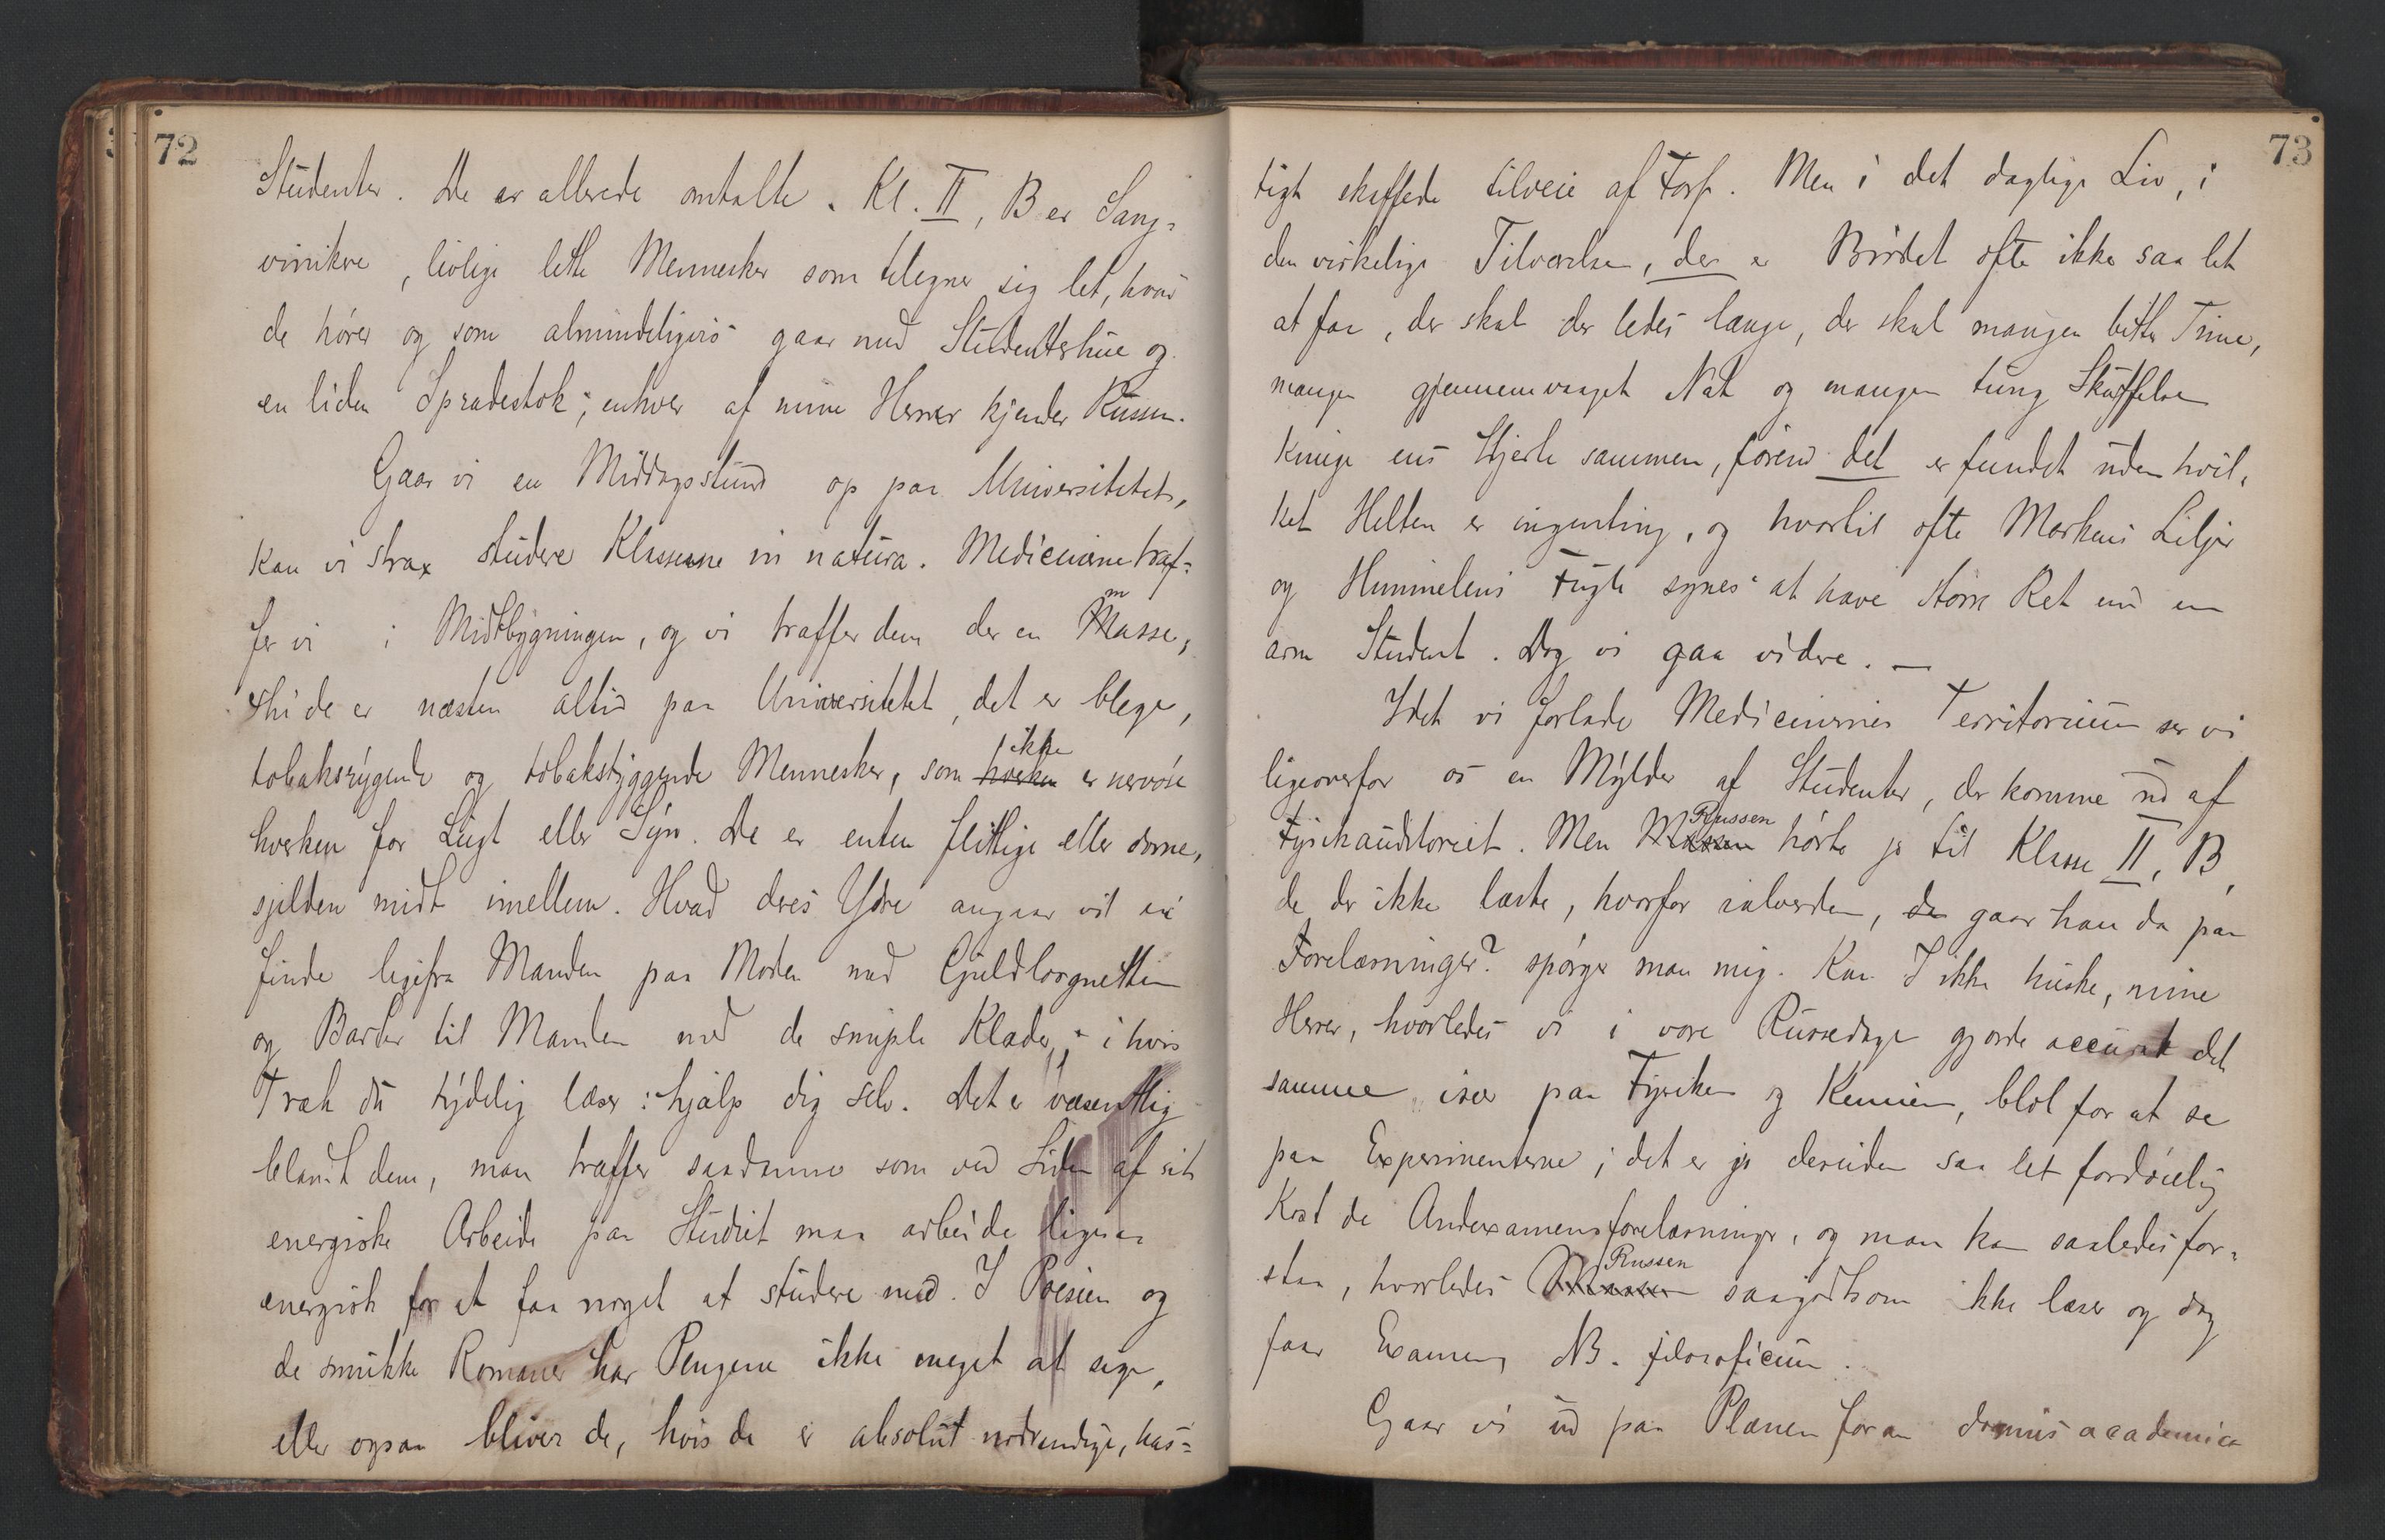 72
Studenter. De er allerede omtalte. Kl. II, B er Sang-
vinikere, livlige lette Mennesker som tilegner sig let, hvad
de hører og som almindeligvis gaar med Studenterhue og
en liden Spradestok; enhver af mine Herrer kjender Russen.
Gaar vi en Middagsstund op paa Universitetet,
kan vi strax studere Klasserne in natura. Medicinerne træf-
fer vi i Midtbygningen, og vi træffer dem der en masse,
thi de er næsten altid paa Universitetet, det er blege,
tobaksrygende og tobakstyggende Mennesker, som hverken ikke er nervøse
hverken for Lugt eller Syn. De er enten flittige eller dovne,
sjelden midt imellem. Hvad deres Ydre angaar vil vi
finde ligefra Manden paa Moden med Guldlorgnetten
og Barter til Manden med de simple Klæder, i hvis
Træk du tydelig læser: hjælp dig selv. Det er væsentlig
blandt dem, man træffer saadanne som ved Siden af sit
energiske Arbeide paa Studiet maa arbeide ligesaa
energisk for at faa noget at studere med. I Poesien og
de smukke Romaner har Pengene ikke meget at sige,
eller ogsaa bliver de, hvis de er absolut nødvendige, has-
73
tigt skaffede tilveie af Forf. Men i det daglige Liv, i
den virkelige Tilværelse, der er Brødet ofte ikke saa let
at faa, der skal der ledes længe, der skal mangen bitter Time,
mangen gjennemvaaget Nat og mangen tung Skuffelse
knuge ens Hjerte sammen, førend det er fundet uden hvil-
ket Helten er ingenting, og hvortil ofte Markens Liljer
og Himmelens Fugle synes at have større Ret end en
arm Student. Dog vi gaa videre. —
Idet vi forlade Medicinernes Territorium ser vi
ligeoverfor os en Mylder af Studenter, der komme ud af
Fysikauditoriet. Men Russen hørte jo til Klasse II, B,
de der ikke læste, hvorfor ialverden, da gaar han da paa
Forelæsninger? spørger man mig. Kan I ikke huske, mine
Herrer, hvorledes vi i vore Russedage gjorde accurat det
samme især paa Fysiken og Kemien, blot for at se
paa Experimenterne; det er jo desuden saa let fordøielig
Kost de Andexamensforelæsninger, og man kan saaledes for-
staa, hvorledes Russen saagodtsom ikke læser og dog
faar Examen, NB. filosoficum.
Gaar vi ud paa Planen foran domus academica